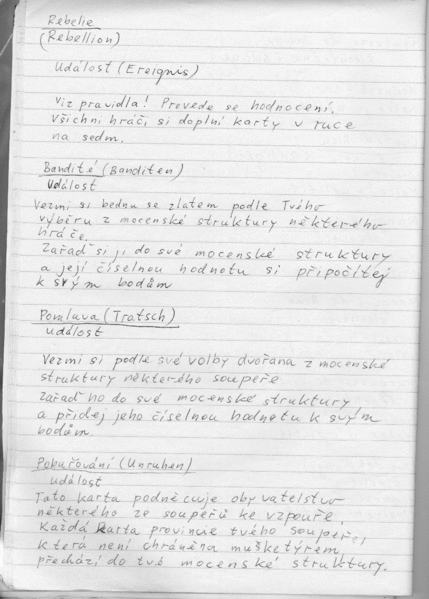 Rebelie
(Rebellion)
Událost (Ereignis)
Viz pravidla! Provede se hodnocení.
Všichni hráči si doplní karty v ruce
na sedm.
Bandité (Banditen)
Událost
Vezmi si bednu se zlatem podle Tvého
výběru z mocenské struktury některého
hráče.
Zařaď si ji do své mocenské struktury
a její číselnou hodnotu si připočítej
k svým bodům
Pomluva (Tratsch)
událost
Vezmi si podle své volby dvořana z mocenské
struktury některého soupeře
Zařaď ho do své mocenské struktury
a přidej jeho číselnou hodnotu k svým
bodům.
Pobuřování (Unruhen)
událost
Tato karta podněcuje obyvatelstvo
některého ze soupeřů ke vzpouře.
Každá karta provincie tvého soupeře,
která není chráněna mušketýrem,
přechází do tvé mocenské struktury.